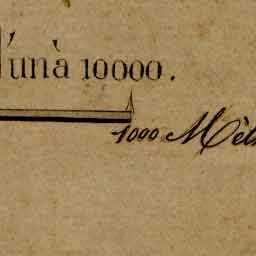 d'un à 10000.
1000 Mèt